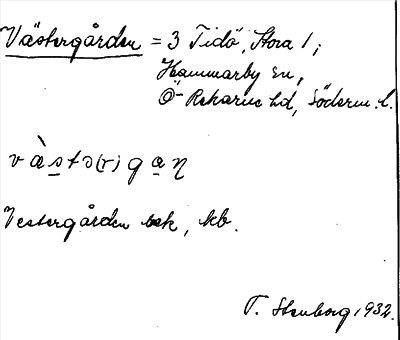 Västergården = 3 Tidö, Stora 1;
Hammarby sn,
Ö-Rekarne hd, Söderm. l.
v ä̀ s t ə (r) g a n
Vestergården ek, kb.
T. Stenborg 1932.